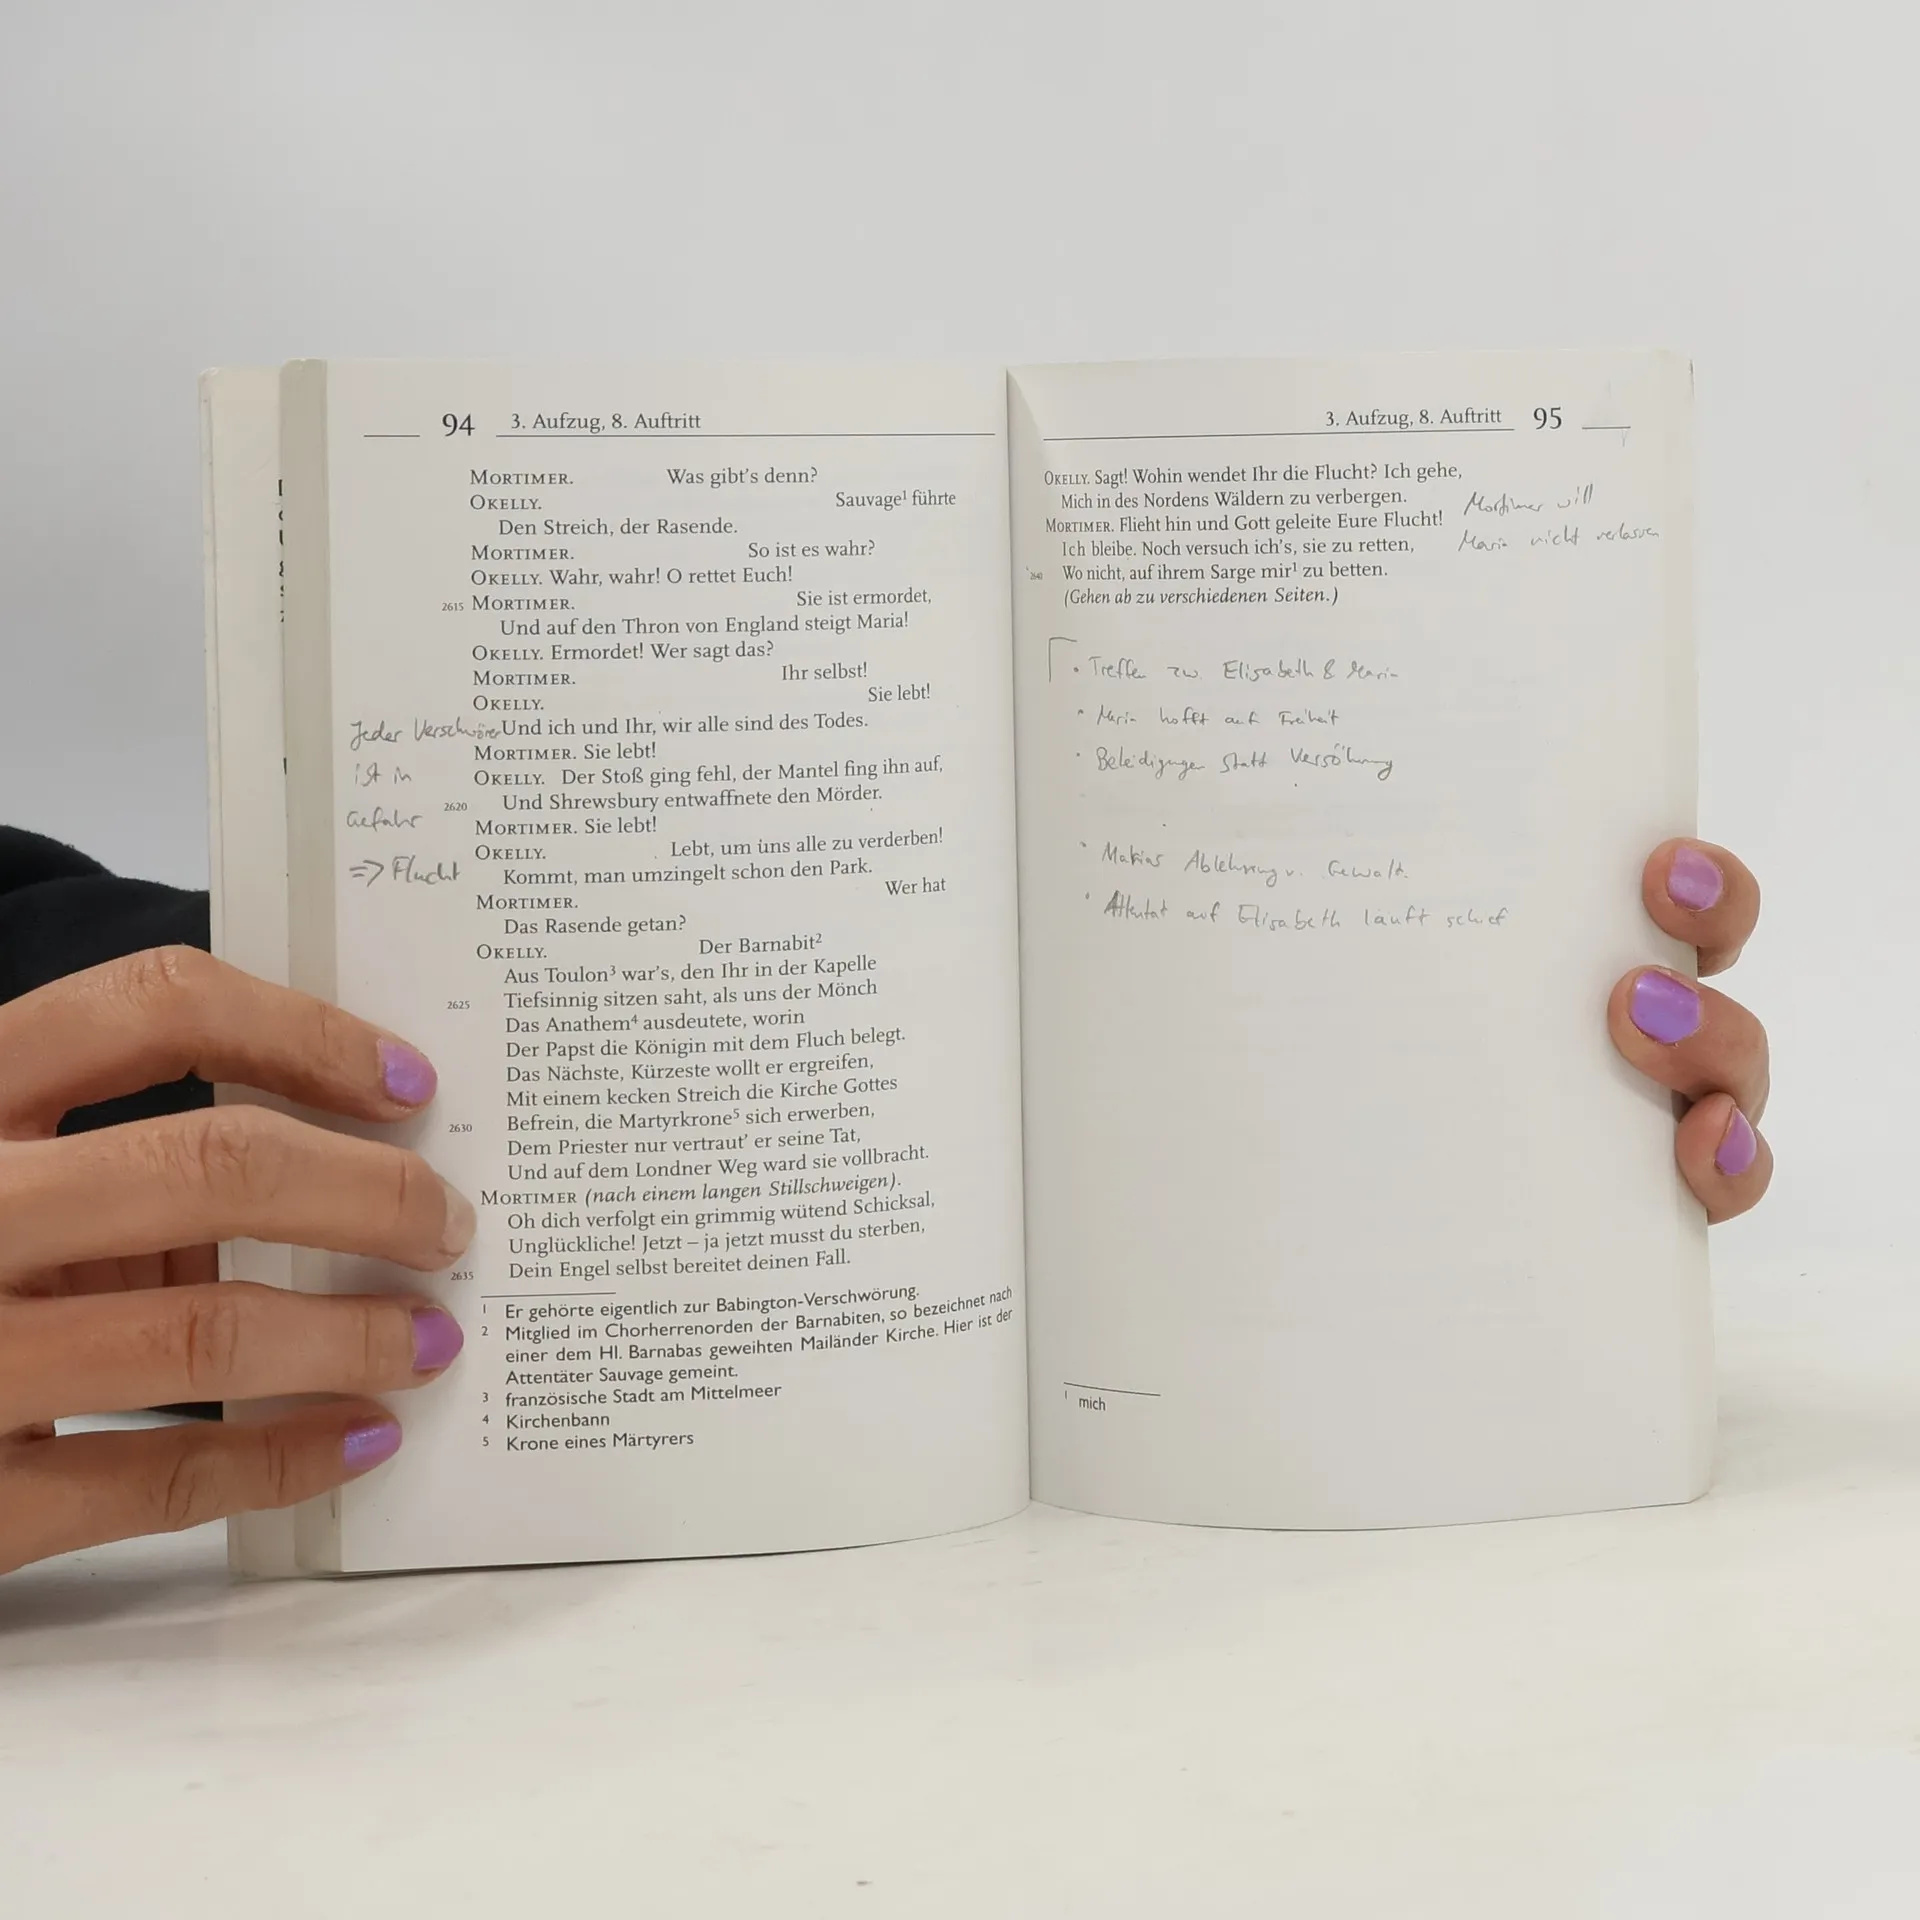 94 3. Aufzug, 8. Auftritt
MORTIMER. Was gibt's denn?
OKELLY. Sauvage¹ führte
Den Streich, der Rasende.
MORTIMER. So ist es wahr?
OKELLY. Wahr, wahr! O rettet Euch!
2615 MORTIMER. Sie ist ermordet,
Und auf den Thron von England steigt Maria!
OKELLY. Ermordet! Wer sagt das?
MORTIMER. Ihr selbst!
OKELLY. Sie lebt!
Und ich und Ihr, wir alle sind des Todes.
MORTIMER. Sie lebt!
OKELLY. Der Stoß ging fehl, der Mantel fing ihn auf,
2620 Und Shrewsbury entwaffnete den Mörder.
MORTIMER. Sie lebt!
OKELLY. Lebt, um uns alle zu verderben!
Kommt, man umzingelt schon den Park.
MORTIMER. Wer hat
Das Rasende getan?
OKELLY. Der Barnabit²
Aus Toulon³ war's, den Ihr in der Kapelle
2625 Tiefsinnig sitzen saht, als uns der Mönch
Das Anathem⁴ ausdeutete, worin
Der Papst die Königin mit dem Fluch belegt.
Das Nächste, Kürzeste wollt er ergreifen,
Mit einem kecken Streich die Kirche Gottes
2630 Befrein, die Martyrkrone⁵ sich erwerben,
Dem Priester nur vertraut' er seine Tat,
Und auf dem Londner Weg ward sie vollbracht.
MORTIMER (nach einem langen Stillschweigen).
Oh dich verfolgt ein grimmig wütend Schicksal,
Unglückliche! Jetzt – ja jetzt musst du sterben,
2635 Dein Engel selbst bereitet deinen Fall.
Jeder Verschwörer
ist in
Gefahr
=> Flucht
1 Er gehörte eigentlich zur Babington-Verschwörung.
2 Mitglied im Chorherrenorden der Barnabiten, so bezeichnet nach
einer dem Hl. Barnabas geweihten Mailänder Kirche. Hier ist der
Attentäter Sauvage gemeint.
3 französische Stadt am Mittelmeer
4 Kirchenbann
5 Krone eines Märtyrers
3. Aufzug, 8. Auftritt 95
OKELLY. Sagt! Wohin wendet Ihr die Flucht? Ich gehe,
Mich in des Nordens Wäldern zu verbergen.
MORTIMER. Flieht hin und Gott geleite Eure Flucht!
Ich bleibe. Noch versuch ich's, sie zu retten,
2640 Wo nicht, auf ihrem Sarge mir¹ zu betten.
(Gehen ab zu verschiedenen Seiten.)
Mortimer will
Maria nicht verlassen
• Treffen zw. Elisabeth & Maria
• Maria hofft auf Freiheit
• Beleidigungen statt Versöhnung
• Marias Ablehnung v. Gewalt.
• Attentat auf Elisabeth läuft schief
1 mich